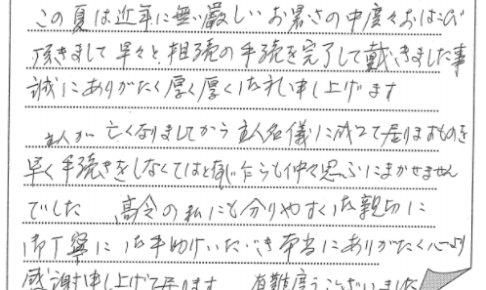 この夏は近年に無い厳しいお暑さの中度々おはこび
頂きまして早々と相続の手続を完了して戴きました事
誠にありがたく厚く厚く御礼申し上げます
主人が亡くなりましてから主人名儀に成って居りますものを
早く手続きをしなくてはと存じ乍らも仲々思ふにまかせません
でした 高令の私にも分りやすく御親切に
御丁寧に御手助けいただき本当にありがたく心より
感謝申し上げて居ります 有難度うございました